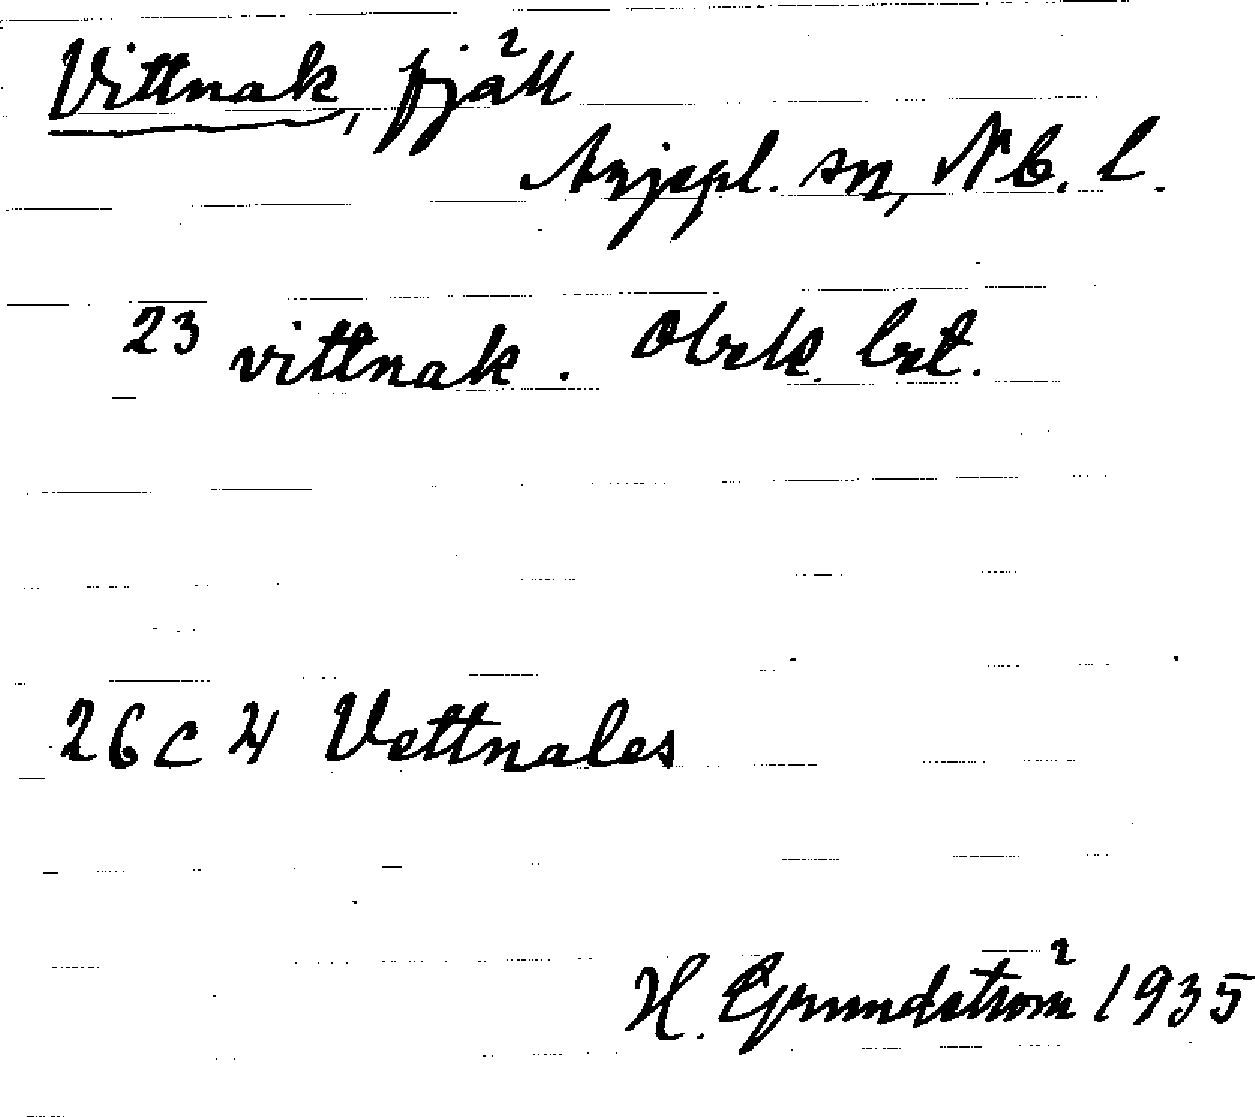 Vittnak, fjäll
Arjepl. sn, Nb. L.
23 vittnak. Obek. bet.
26 C 4 Vettnales
H. Grundström 1935